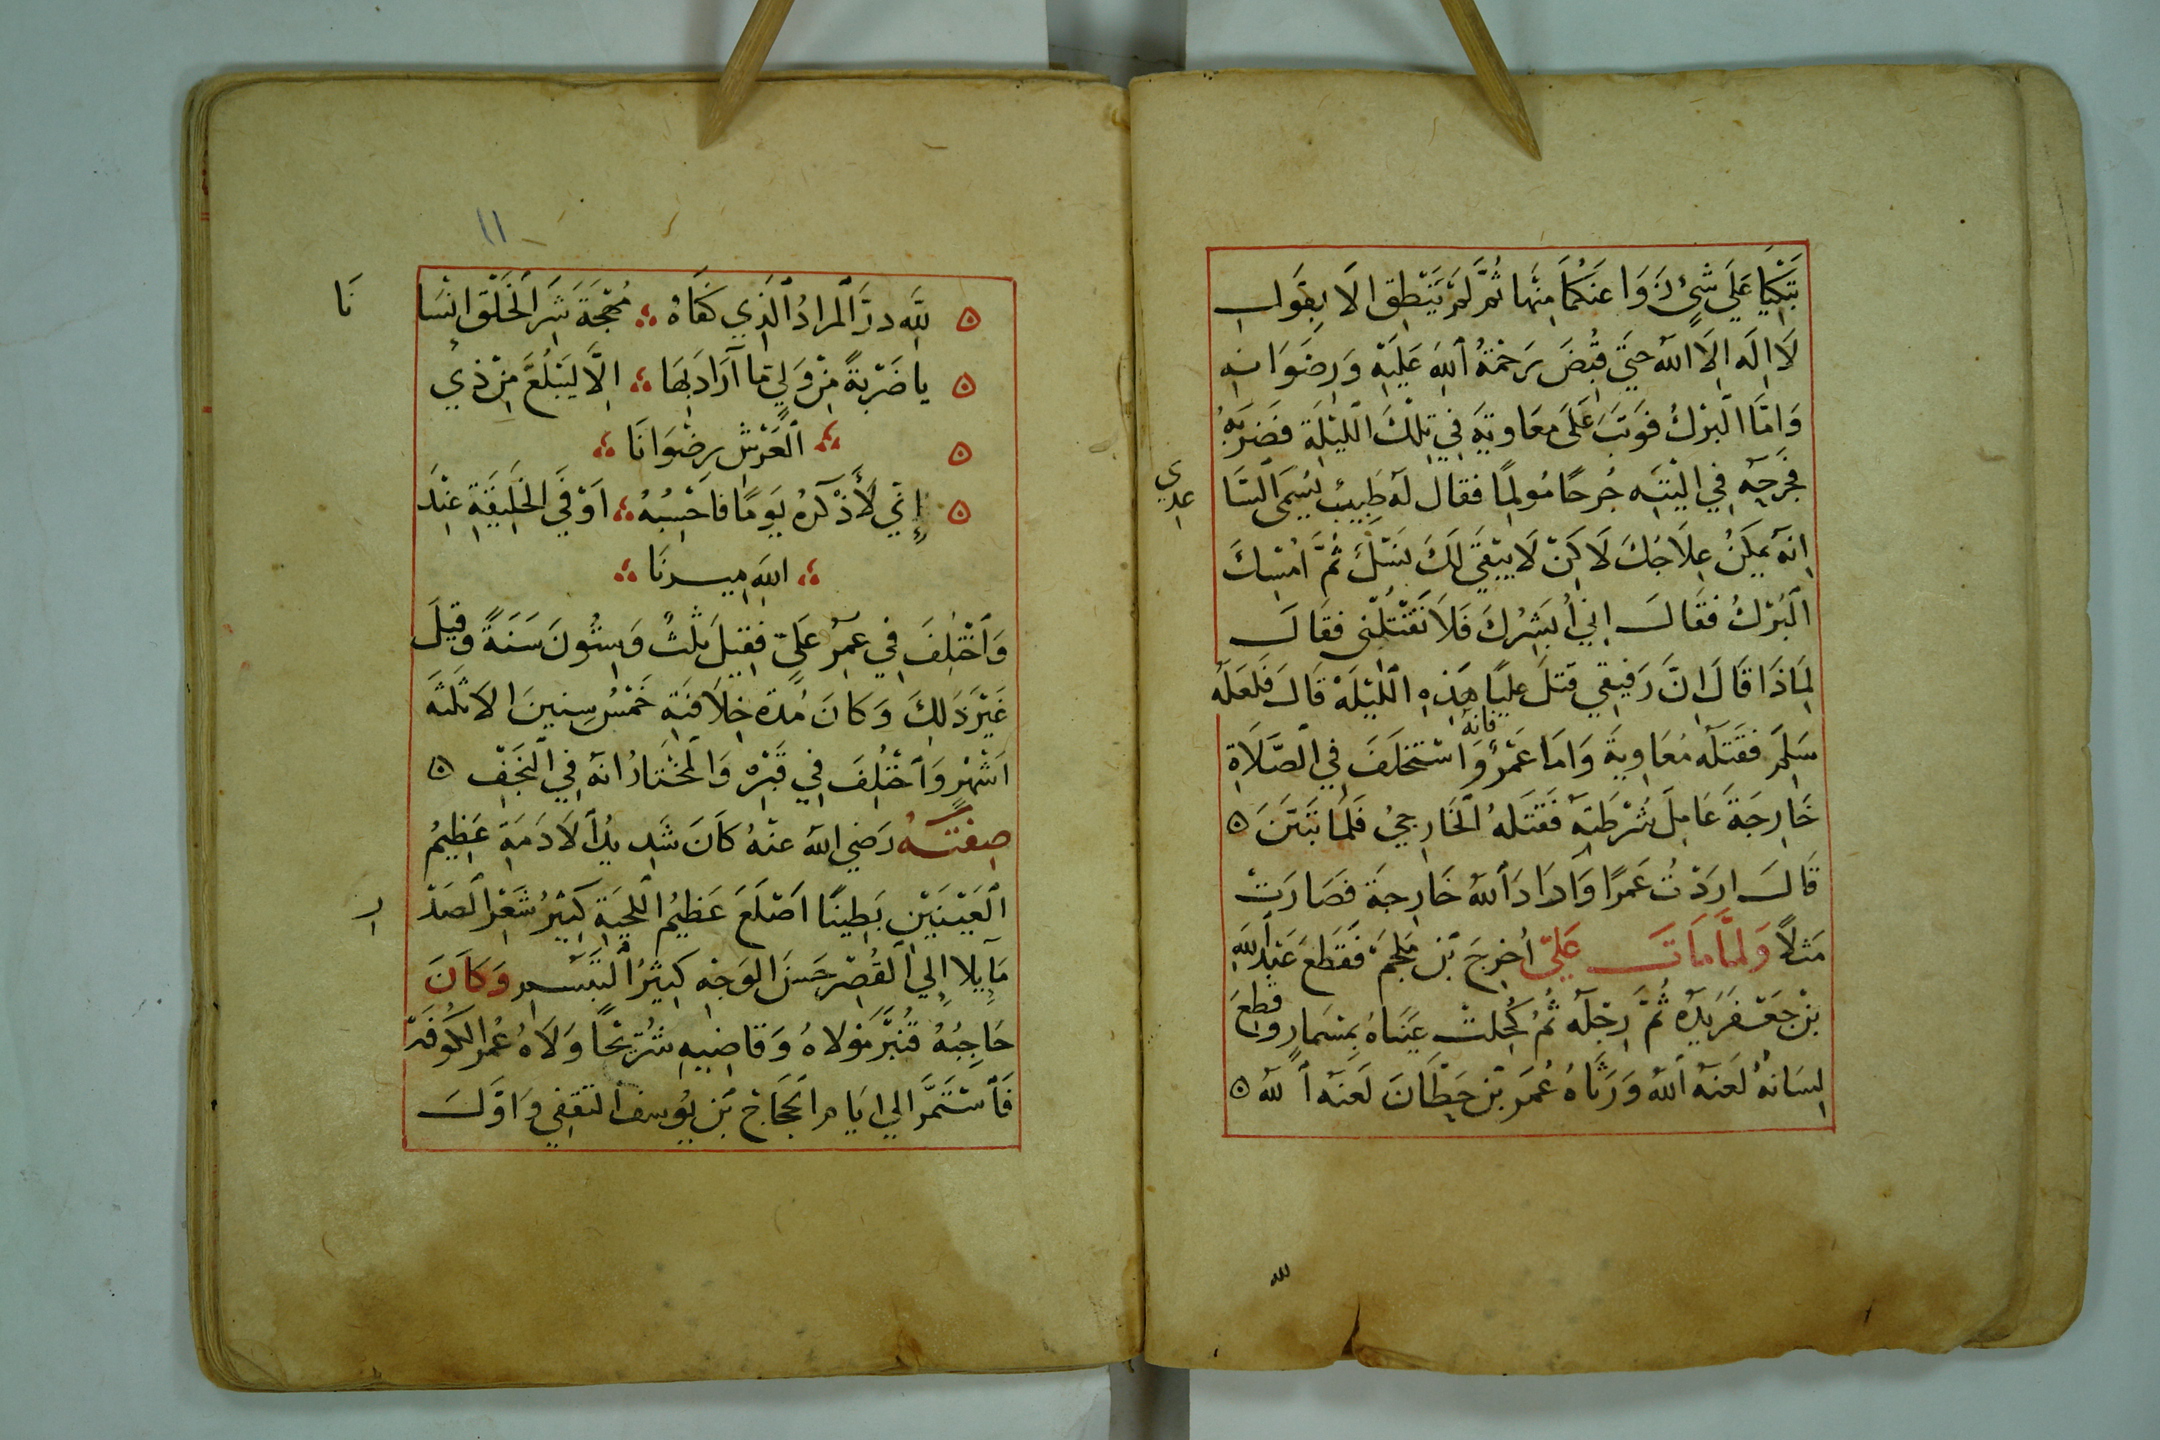 تَبْكِيَا عَلَى شَيْءٍ زَوَا عَنْكُمَا مِنْهَا ثُمَّ لَمْ يَنْطِق الَا بِقَولِ
لَا الَه الَا الله حتَى قُبِضَ رَحْمَةُ اللهِ عَلَيْهِ وَرِضْوَانِهِ
وَامَّا الْبُرَكُ فوَثَبَ عَلَى معَاويَة فِي تِلْكَ الليْلَةِ فَضَرَبَهُ
فجَرَحَهُ فِي اليْتَه جُرحًا مُولمًا فقال لَهُ طَبِيبٌ يُسَمَى السَّا
عدي
انه يمكنُ عِلَاجُكَ لَاكِنْ لَا يبْقَى لَكَ نَسْلٌ ثُمَّ امْسِكَ
الْبُرَكُ فقَالَ اني أُبَشِرُكَ فَلَا تَقْتُلْني فقَالَ
لِمَاذَا قَالَ انَّ رَفِيقِي قتَلَ عليًا هَذِهِ اللَيْلَة قَالَ فَلَعَلَه
سَلِمَ فقَتَلَه مُعَاوِيَة وَامَا عَمْرٌو فانهُ اسْتَخلَفَ فِي الصَّلَاةِ
خَارِجَةَ عَامِلَ شُرْطَتِهِ فَقَتَلَهُ الْخَارِجيُ فَلَمَا تَبَيَّنَ ۞
قَالَ ارَدْتُ عَمرًا وَارَادَ اللهُ خَارِجَةَ فَصَارَتْ
مَثلاً وَلمَّا مَاتَ عَليّ اُخرِجَ بْن مُلجَمْ فَقَطَعَ عَبْدُ اللهِ
بْن جَعْفَر يَدَهُ ثُمَّ رِجْلَهُ ثُمَّ كُحِلتْ عَيْنَاهُ بِمِسْمَارٍ وقطِعَ
لِسَانهُ لَعَنهُ اللهُ وَرَثَاهُ عُمَر بْن حِطَّانَ لَعَنه الله ۞
لله
١١
لِلَّهِ درُّ الْمُرادُ الَّذِي كفَاهُ مُهْجَةَ شَرِ الْخَلْقِ انْسَا
نَا
يا ضَرْبةً مِنْ وَلِيّ مَا اَرَادَ بِهَا الَّا لِيَبْلُغَ مِنْ ذِي
الْعَرْشِ رِضْوَانَا
إِنِّي لَأَذْكُرُهُ يَومًا فَاحْسِبُهُ اَوْفَى الْخَلِيقَةِ عِنْدَ
اللهِ ميزنَا
وَاخْتُلِفَ فِي عمرِ عَليّ فقِيلَ ثلثٌ وَسِتُّونَ سَنَةً وقيلَ
غَيْرَ ذَلِكَ وَكانَ مُدة خِلَافتِهِ خَمْسُ سِنينَ الا ثلثَه
اَشْهُرٍ وَاخْتُلِفَ فِي قَبْرِهِ وَالْمخْتَارُ انه فِي النَجَفِ ۞
صِفَتُهُ رَضي الله عنْهُ كَانَ شَدِيدُ الادَمَةِ عَظِيمُ
الْعَيْنَيْنِ بَطِينًا اَصْلَعَ عَظِيمُ اللحْيَةِ كَثِيْرُ شَعْرِ الصَدْ
رِ
مَايِلا إِلَي الْقُصْرِ حَسَنَ الوَجْهِ كَثِيْرُ التَّبَسُّمِ وَكَانَ
حَاجِبُهُ قُنْبَرٌ مَوْلاهُ وَقاضِيهِ شُرَيْحًا وَلَاهُ عُمَر الكُوفَة
فَاسْتَمَّر الي ايَامِ الحَجَاج بْن يُوسف الثقفِي وَاوَّلَ